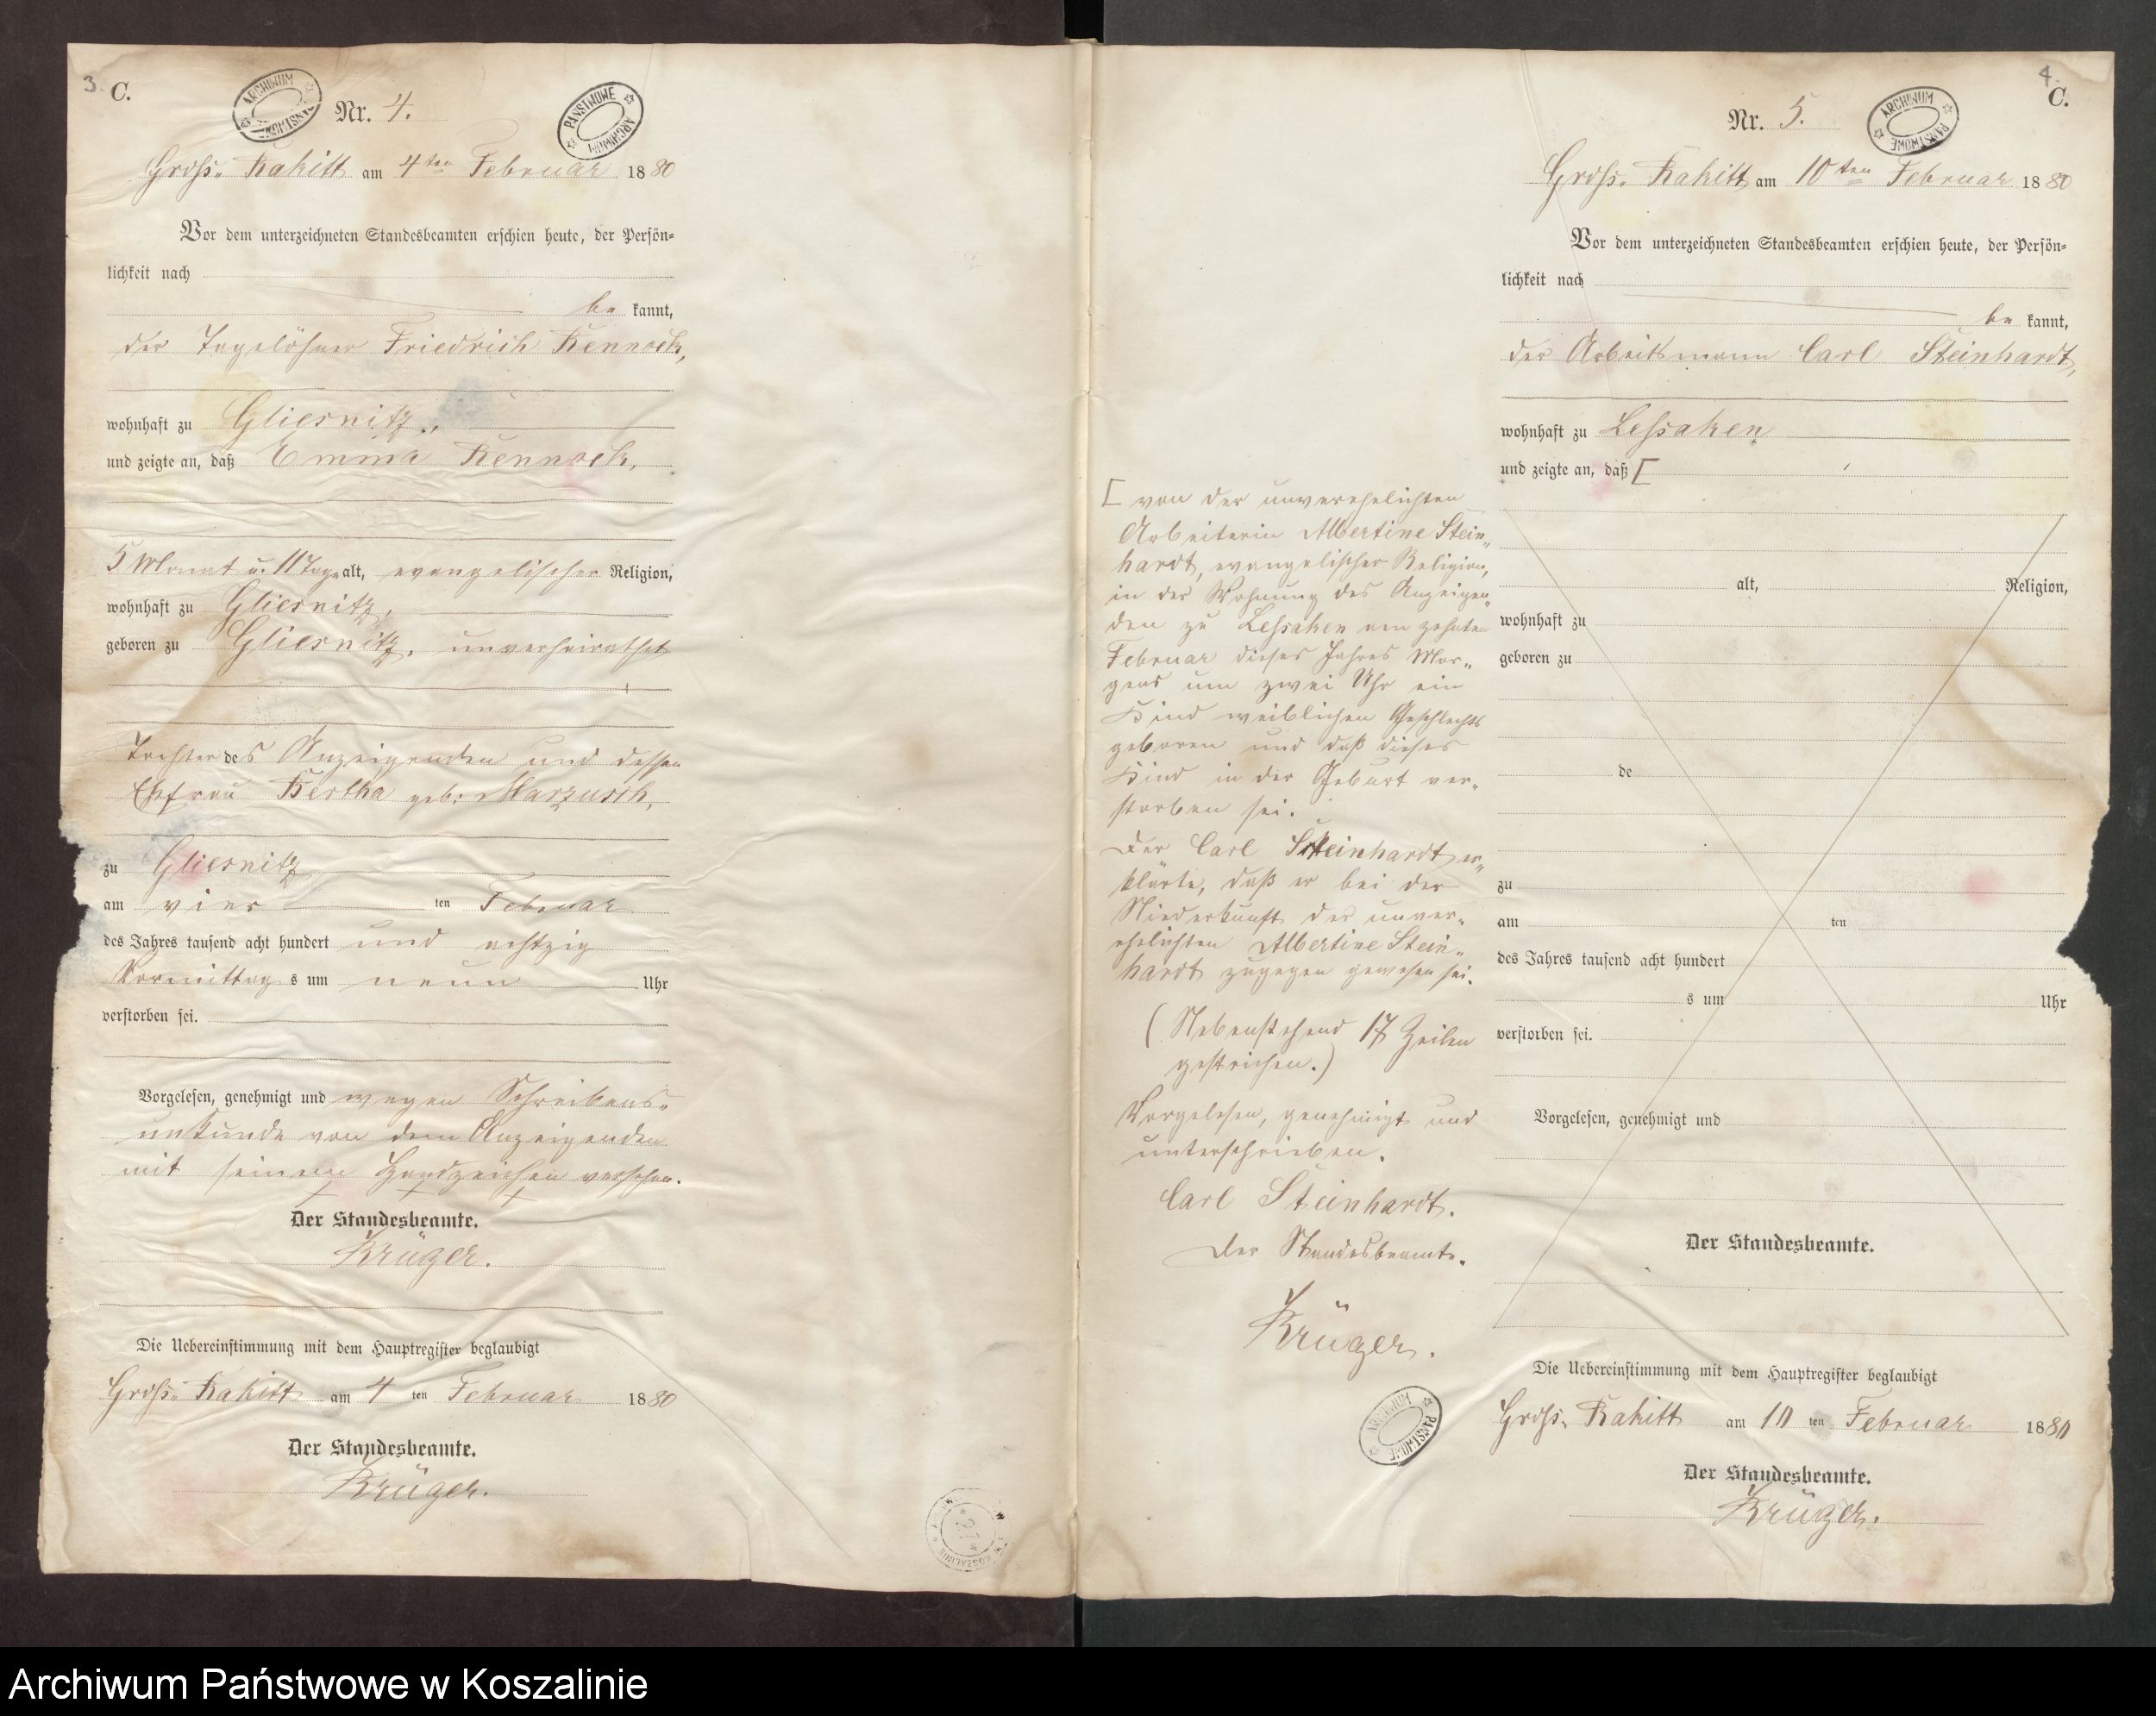 3. C.
ARCHIWUM PAŃSTWOWE
Nr. 4.
PAŃSTWOWE ARCHIWUM
Gross-Rakitt am 4ten Februar 1880
Vor dem unterzeichneten Standesbeamten erschien heute, der Persön-
lichkeit nach
be kannt,
der Tagelöhner Friedrich Kennock,
wohnhaft zu Gliesnitz,
und zeigte an, daß Emma Kennock,
5 Monat u. 11 Tage alt, evangelischer Religion,
wohnhaft zu Gliesnitz,
geboren zu Gliesnitz, unverheirathet
Tochter des Anzeigenden und dessen
Ehefrau Bertha geb: Marzusch,
zu Gliesnitz
am vier ten Februar
des Jahres tausend acht hundert und achtzig
Vormittag s um neun Uhr
verstorben sei.
Vorgelesen, genehmigt und wegen Schreibens-
unkunde von dem Anzeigenden
mit seinem Handzeichen versehen.
+ + +
Der Standesbeamte.
Krüger.
Die Uebereinstimmung mit dem Hauptregister beglaubigt
Gross-Rakitt am 4 ten Februar 1880
Der Standesbeamte.
Krüger.
4. C.
Nr. 5.
ARCHIWUM PAŃSTWOWE
Gross-Rakitt am 10ten Februar 1880
Vor dem unterzeichneten Standesbeamten erschien heute, der Persön-
lichkeit nach
be kannt,
der Arbeitsmann Carl Steinhardt,
wohnhaft zu Lessaken
und zeigte an, daß [
[ von der unverehelichten
Arbeiterin Albertine Stein-
hardt, evangelischer Religion,
in der Wohnung des Anzeigen-
den zu Lessaken am zehnten
Februar dieses Jahres Mor-
gens um zwei Uhr ein
Kind weiblichen Geschlechts
geboren und daß dieses
Kind in der Geburt ver-
storben sei.
Der Carl Steinhardt er-
klärte, daß er bei der
Niederkunft der unver-
ehelichten Albertine Stein-
hardt zugegen gewesen sei.
(Nebenstehend 17 Zeilen
gestrichen.)
Vorgelesen, genehmigt und
unterschrieben.
Carl Steinhardt.
Der Standesbeamte.
Krüger.
ARCHIWUM PAŃSTWOWE
alt, Religion,
wohnhaft zu
geboren zu
de
zu
am ten
des Jahres tausend acht hundert
s um Uhr
verstorben sei.
Vorgelesen, genehmigt und
Der Standesbeamte.
Die Uebereinstimmung mit dem Hauptregister beglaubigt
Gross-Rakitt am 10 ten Februar 1880
Der Standesbeamte.
Krüger.
Archiwum Państwowe w Koszalinie